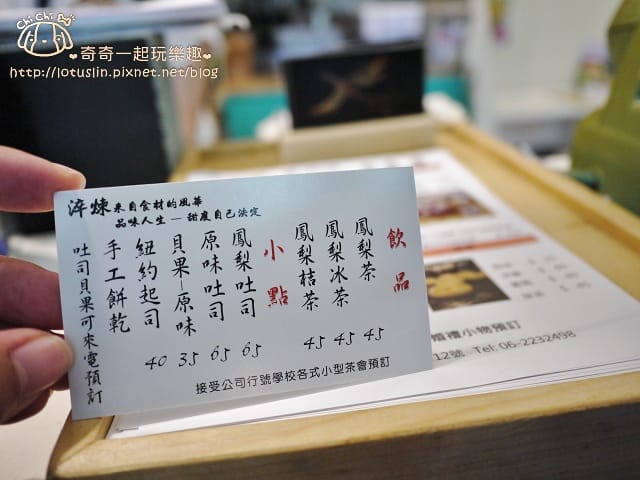 Chi Chi
奇奇一起玩樂趣
http://lotuslin.pixnet.net/blog
淬煉 來自食材的風華
品味人生 — 甜度自己決定
飲品
鳳梨茶 45
鳳梨冰茶 45
鳳梨桔茶 45
小點
鳳梨吐司 65
原味吐司 65
貝果-原味 35
紐約起司 40
手工餅乾
吐司貝果可來電預訂
接受公司行號學校各式小型茶會預訂
婚禮小物預訂
12號. Tel: 06-2232498